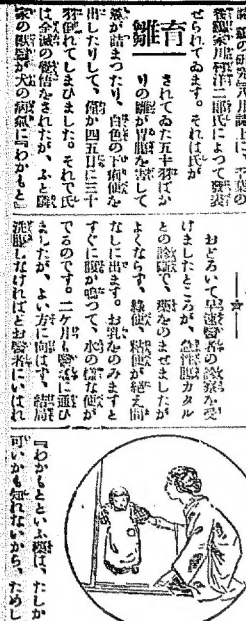 の研究誌に、千葉の
せられてゐます。それは氏が
育雛
されてゐた五十羽ばか
りの雛が胃腸を害して
糞が詰まつたり、白色の下痢便を
出したりして、僅か四五日に三十
羽倒れてしまひました。それで氏
は全滅の覺悟をされたが、ふと隣
家の獸醫が犬の病氣に『わかもと』
おどろいて早速醫者の診察を受
けましたところが、急性腸カタル
との診斷で、藥をのませましたが
よくならず、綠便、粘便が絶え間
なしに出ます。お乳をのみますと
すぐに腹が鳴つて、水の樣な便が
でるのです。二ケ月も醫者に通ひ
ましたが、よい方に向はず、結局
洗腸しなければとお醫者にいはれ
『わかもとといふ藥は、たしか
可いかも知れないから、ためし